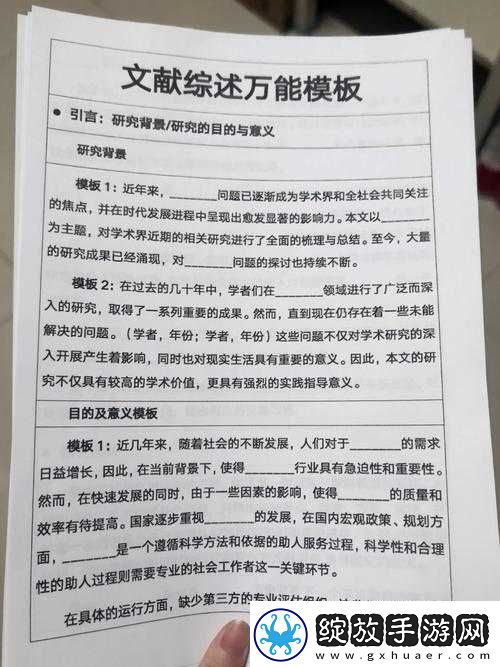 文献综述万能模板
● 引言：研究背景/研究的目的与意义
研究背景
模板 1：近年来，________问题已逐渐成为学术界和全社会共同关注
的焦点，并在时代发展进程中呈现出愈发显著的影响力。本文以________
为主题，对学术界近期的相关研究进行了全面的梳理与总结。至今，大量
的研究成果已经涌现，对________问题的探讨也持续不断。
模板 2：在过去的几十年中，学者们在________领域进行了广泛而深
入的研究，取得了一系列重要的成果。然而，直到现在仍存在着一些未能
解决的问题。（学者，年份；学者，年份）这些问题不仅对学术研究的深
入开展产生着影响，同时也对现实生活具有重要的意义。因此，本文的研
究不仅具有较高的学术价值，更具有强烈的实践指导意义。
目的及意义模板
模板 1：近几年来，随着社会的不断发展，人们对于________的需求
日益增长，因此，在当前背景下，使得________行业具有急迫性和重要性。
然而，在快速发展的同时，由于一些因素的影响，使得________的质量和
效率有待提高。国家逐步重视________的发展，在国内宏观政策、规划方
面，________是一个遵循科学方法和依据的助人服务过程，科学性和合理
性的助人过程则需要专业的社会工作者这一关键环节。
在具体的运行方面，缺少第三方的专业评估组织
绽放手游网
www.gxhuaer.com